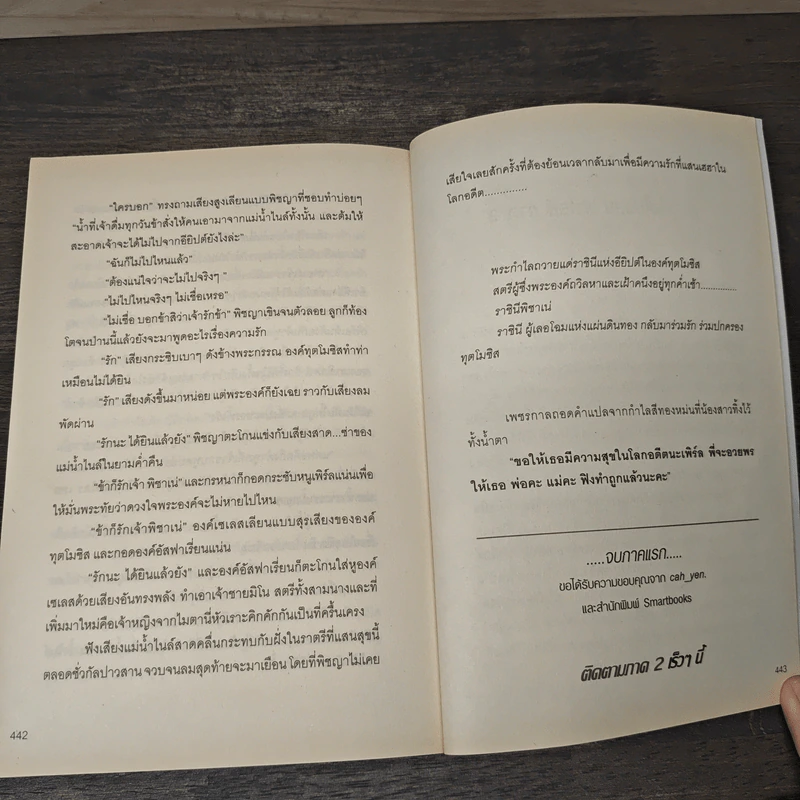 "ใครบอก" ทรงถามเสียงสูงเลียนแบบพิชญาที่ชอบทำบ่อยๆ
"น้ำที่เจ้าดื่มทุกวันข้าสั่งให้คนเอามาจากแม่น้ำไนล์ทั้งนั้น และต้มให้
สะอาดเจ้าจะได้ไม่ไปจากอียิปต์ยังไงล่ะ"
"ฉันก็ไม่ไปไหนแล้ว"
"ต้องแน่ใจว่าจะไม่ไปจริงๆ "
"ไม่ไปไหนจริงๆ ไม่เชื่อเหรอ"
"ไม่เชื่อ บอกข้าสิว่าเจ้ารักข้า" พิชญาเขินจนตัวลอย ลูกก็ท้อง
โตจนป่านนี้แล้วยังจะมาพูดอะไรเรื่องความรัก
"รัก" เสียงกระซิบเบาๆ ดังข้างพระกรรณ องค์ทุตโมซิสทำท่า
เหมือนไม่ได้ยิน
"รัก" เสียงดังขึ้นมาหน่อย แต่พระองค์ก็ยังเฉย ราวกับเสียงลม
พัดผ่าน
"รักนะ ได้ยินแล้วยัง" พิชญาตะโกนแข่งกับเสียงสาด...ซ่าของ
แม่น้ำไนล์ในยามค่ำคืน
"ข้าก็รักเจ้า พิซาเน่" และกรหนาก็กอดกระชับหนูเพิร์ลแน่นเพื่อ
ให้มั่นพระทัยว่าดวงใจพระองค์จะไม่หายไปไหน
"ข้าก็รักเจ้าพิซาเน่" องค์เซเลสเลียนแบบสุรเสียงขององค์
ทุตโมซิส และกอดองค์อัสฟาเรี่ยนแน่น
"รักนะ ได้ยินแล้วยัง" และองค์อัสฟาเรี่ยนก็ตะโกนใส่หูองค์
เซเลสด้วยเสียงอันทรงพลัง ทำเอาเจ้าชายมิโน สตรีทั้งสามนางและที่
เพิ่มมาใหม่คือเจ้าหญิงจากไมตานี่หัวเราะคิกคักกันเป็นที่ครื้นเครง
ฟังเสียงแม่น้ำไนล์สาดคลื่นกระทบกับฝั่งในราตรีที่แสนสุขนี้
ตลอดชั่วกัลปาวสาน จวบจนลมสุดท้ายจะมาเยือน โดยที่พิชญาไม่เคย
442
เสียใจเลยสักครั้งที่ต้องย้อนเวลากลับมาเพื่อมีความรักที่แสนเฮฮาใน
โลกอดีต..............
พระกำไลถวายแด่ราชินีแห่งอียิปต์ในองค์ทุตโมซิส
สตรีผู้ซึ่งพระองค์ถวิลหาและเฝ้าคนึงอยู่ทุกค่ำเช้า.............
ราชินีพิซาเน่
ราชินี ผู้เลอโฉมแห่งแผ่นดินทอง กลับมาร่วมรัก ร่วมปกครอง
ทุตโมซิส
เพชรกาลถอดคำแปลจากกำไลสีทองหม่นที่น้องสาวทิ้งไว้
ทั้งน้ำตา
"ขอให้เธอมีความสุขในโลกอดีตนะเพิร์ล พี่จะอวยพร
ให้เธอ พ่อคะ แม่คะ ฟิงทำถูกแล้วนะคะ"
.....จบภาคแรก.....
ขอได้รับความขอบคุณจาก cah_yen.
และสำนักพิมพ์ Smartbooks
ติดตามภาค 2 เร็วๆ นี้
443